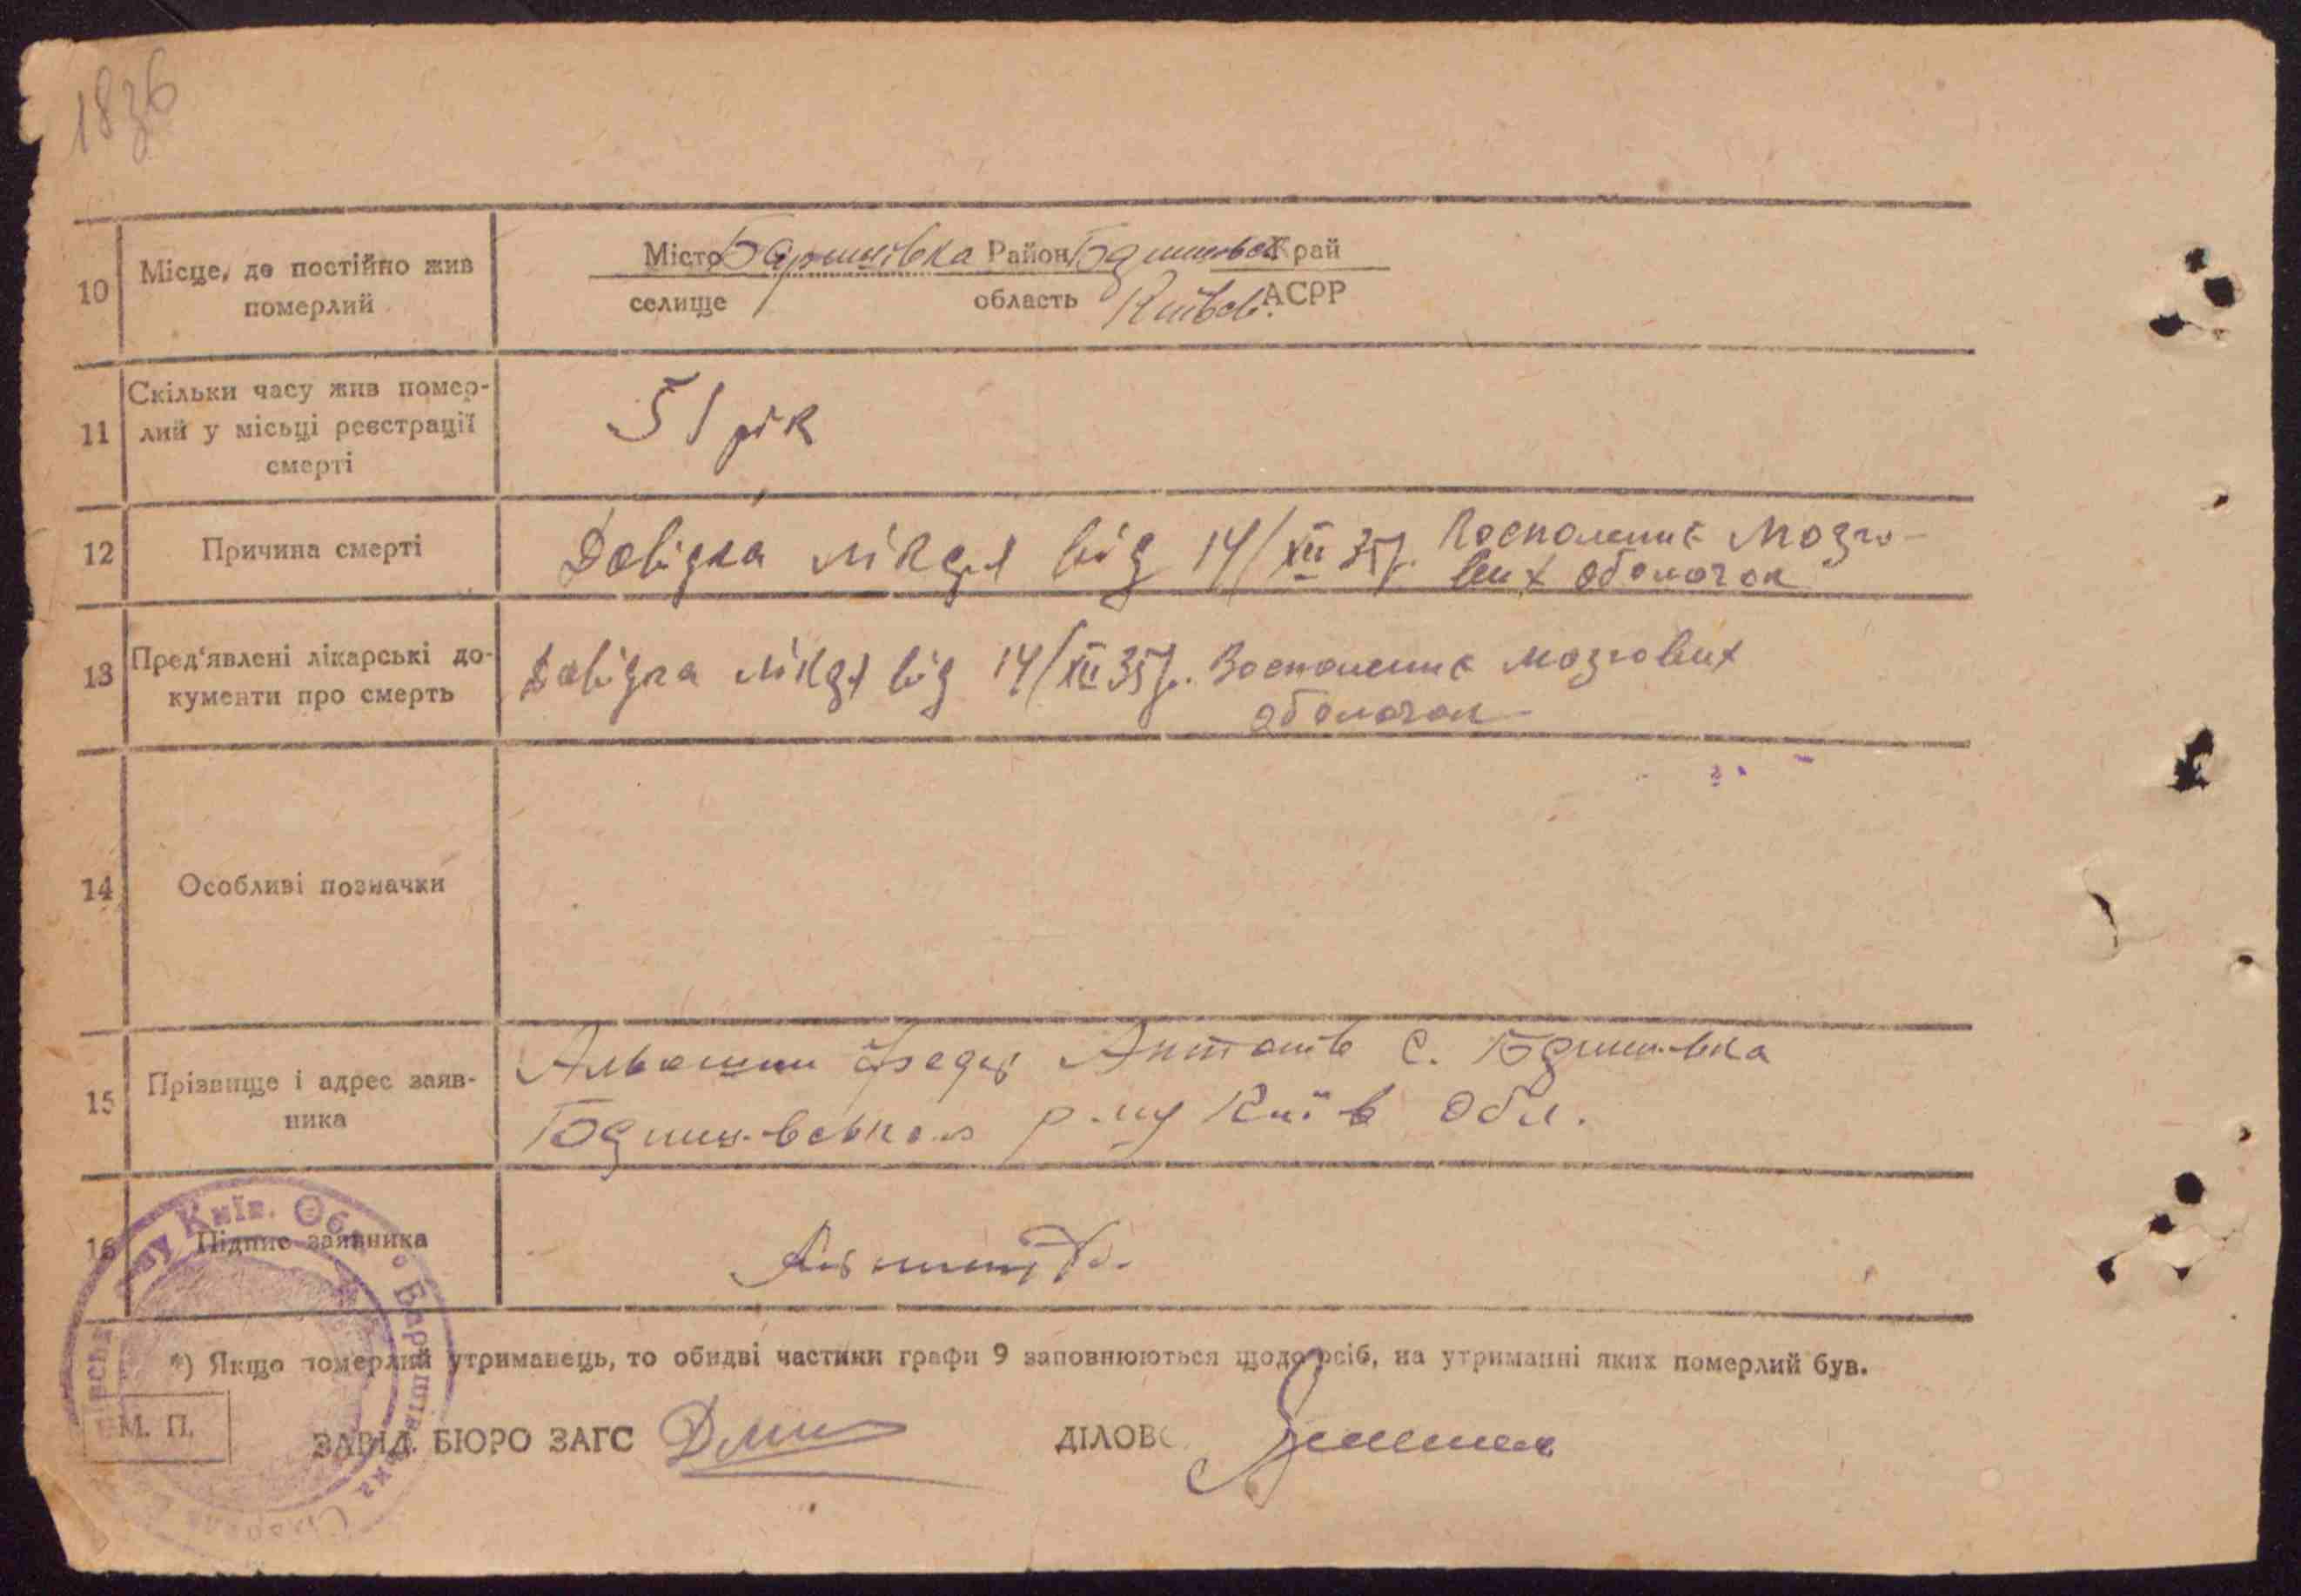 1836
10 Місце, де постійно жив померлий
Місто Баришівка Район Баришевск Край
селище область Київсь. АСРР
11 Скільки часу жив помер-
лий у місьці реєстрації
смерті
51 рік
12 Причина смерті
Довідка лікаря від 14/XII 35 р. Воспаленіє мозго-
вих оболочок
13 Пред'явлені лікарські до-
кументи про смерть
Довідка лікаря від 14/XII 35 р. Воспаленіє мозгових
оболочок
14 Особливі позначки
15 Прізвище і адрес заяв-
ника
Антонів с. Баришівка
р-ну Київ Обл.
16 Підпис заявника
Київ. Обл. Баришівська
*) Якщо померлий утриманець, то обидві частини графи 9 заповнюються щодо осіб, на утриманні яких померлий був.
М. П.
ЗАВІД. БЮРО ЗАГС
ДІЛОВ